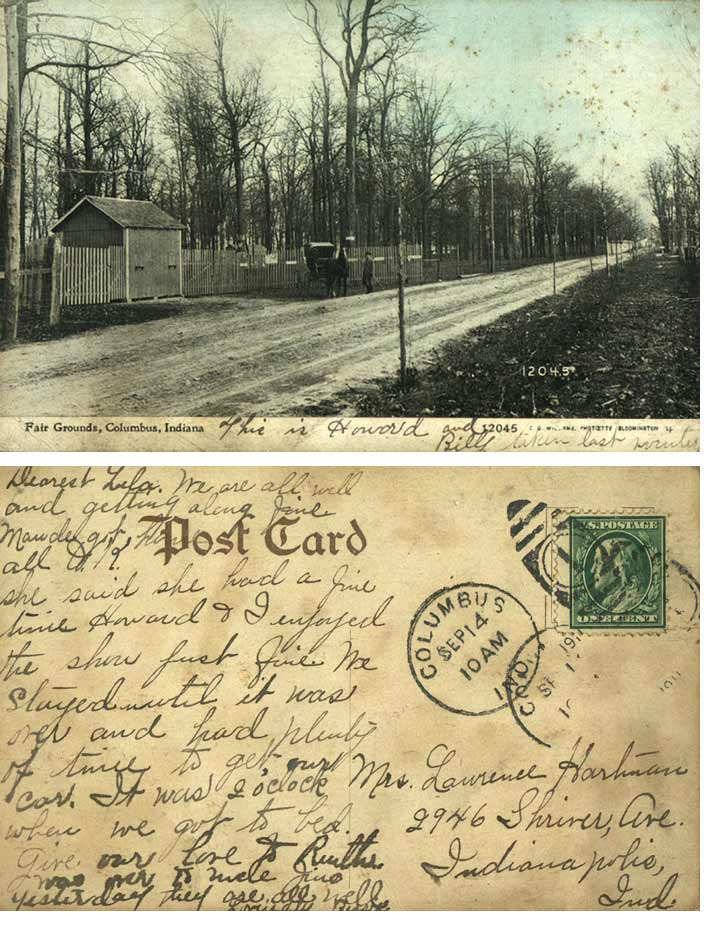 12045
Fair Grounds, Columbus, Indiana This is Howard and 12045 C. U. WILLIAMS, PHOTOETTE BLOOMINGTON
Billy taken last winter
Dearest Lela. We are all well
and getting along fine
Maude got
Post Card
all O.K.
she said she had a fine
time Howard & I enjoyed
the show just fine We
Stayed until it was
over and had plenty
of time to get our
car. It was 2 o'clock
when we got to bed.
Give our love to Ruth
was over to uncle Jims
yesterday they are all well
U.S. POSTAGE
COLUMBUS
SEP 14
10 AM
IND.
Mrs. Lawrence Hartman
2946 Shriver, Ave.
Indianapolis,
Ind.